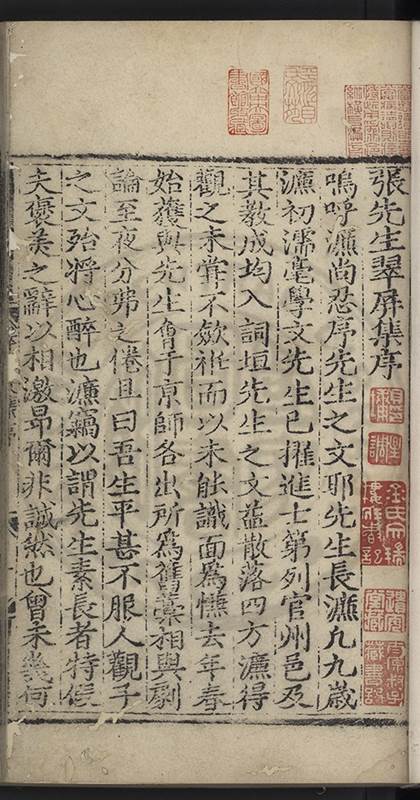 張先生翠屏集序
嗚呼濂尚忍序先生之文耶先生長濂九九歲
濂初濡毫學文先生已擢進士第列官州邑及
其教成均入詞垣先生之文益散落四方濂得
觀之未嘗不歛衽而以未能識面為慊去年春
始獲與先生會于京師各出所為舊藁相與劇
論至夜分弗之倦且曰吾生平甚不服人觀子
之文殆將心醉也濂竊以謂先生素長者特假
夫褒美之辭以相激昂爾非誠然也曾未幾何